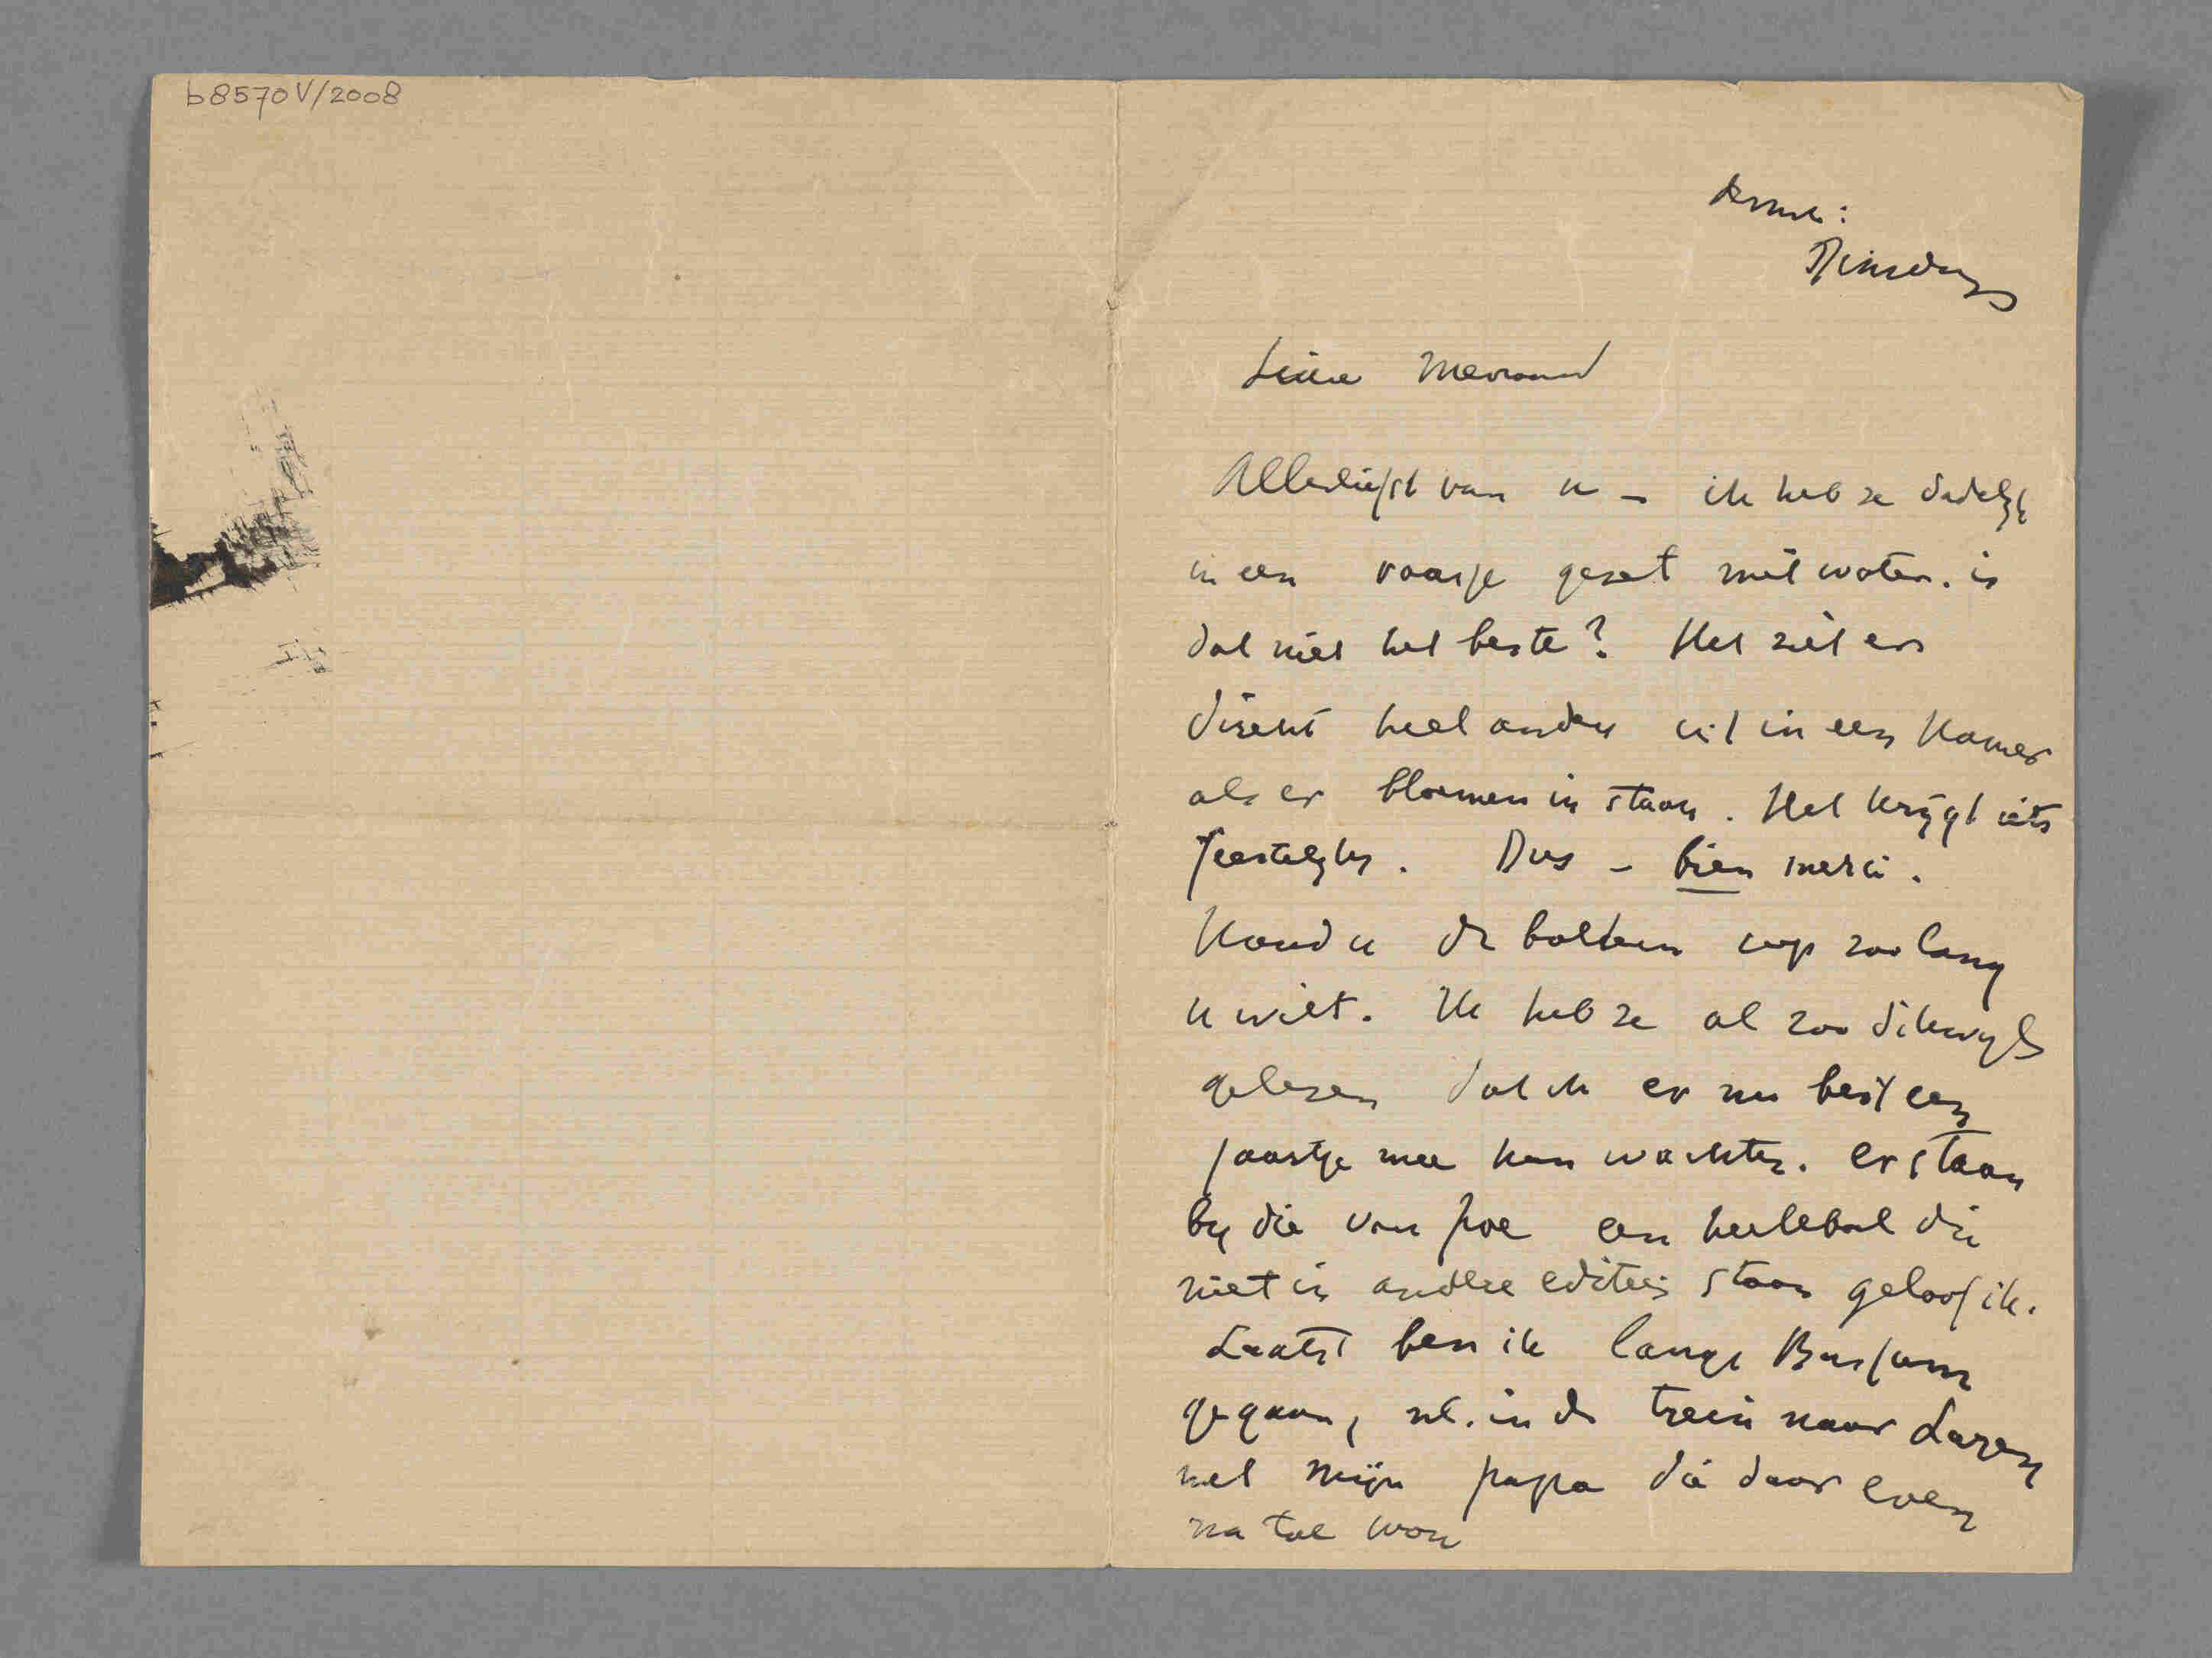 b8570 V/2008
Dinsdag
Lieve Mevrouw
Allerliefst van u – ik heb ze dadelijk
in een vaasje gezet met water. is
dat niet het beste? Het ziet er
direkt heel anders uit in een Kamer
als er bloemen in staan. Het krijgt iets
feestelijks. Dus – bien merci.
Houd u de boeken nog zoo lang
u wilt. Ik heb ze al zoo dikwijls
gelezen dat ik er nu best een
jaartje mee kan wachten. er staan
bij die van Poe een heeleboel die
niet in andere edities staan geloof ik.
Laatst ben ik langs Bussum
gegaan, nl. in de trein naar Laren
met mijn papa die daar even
na toe wou